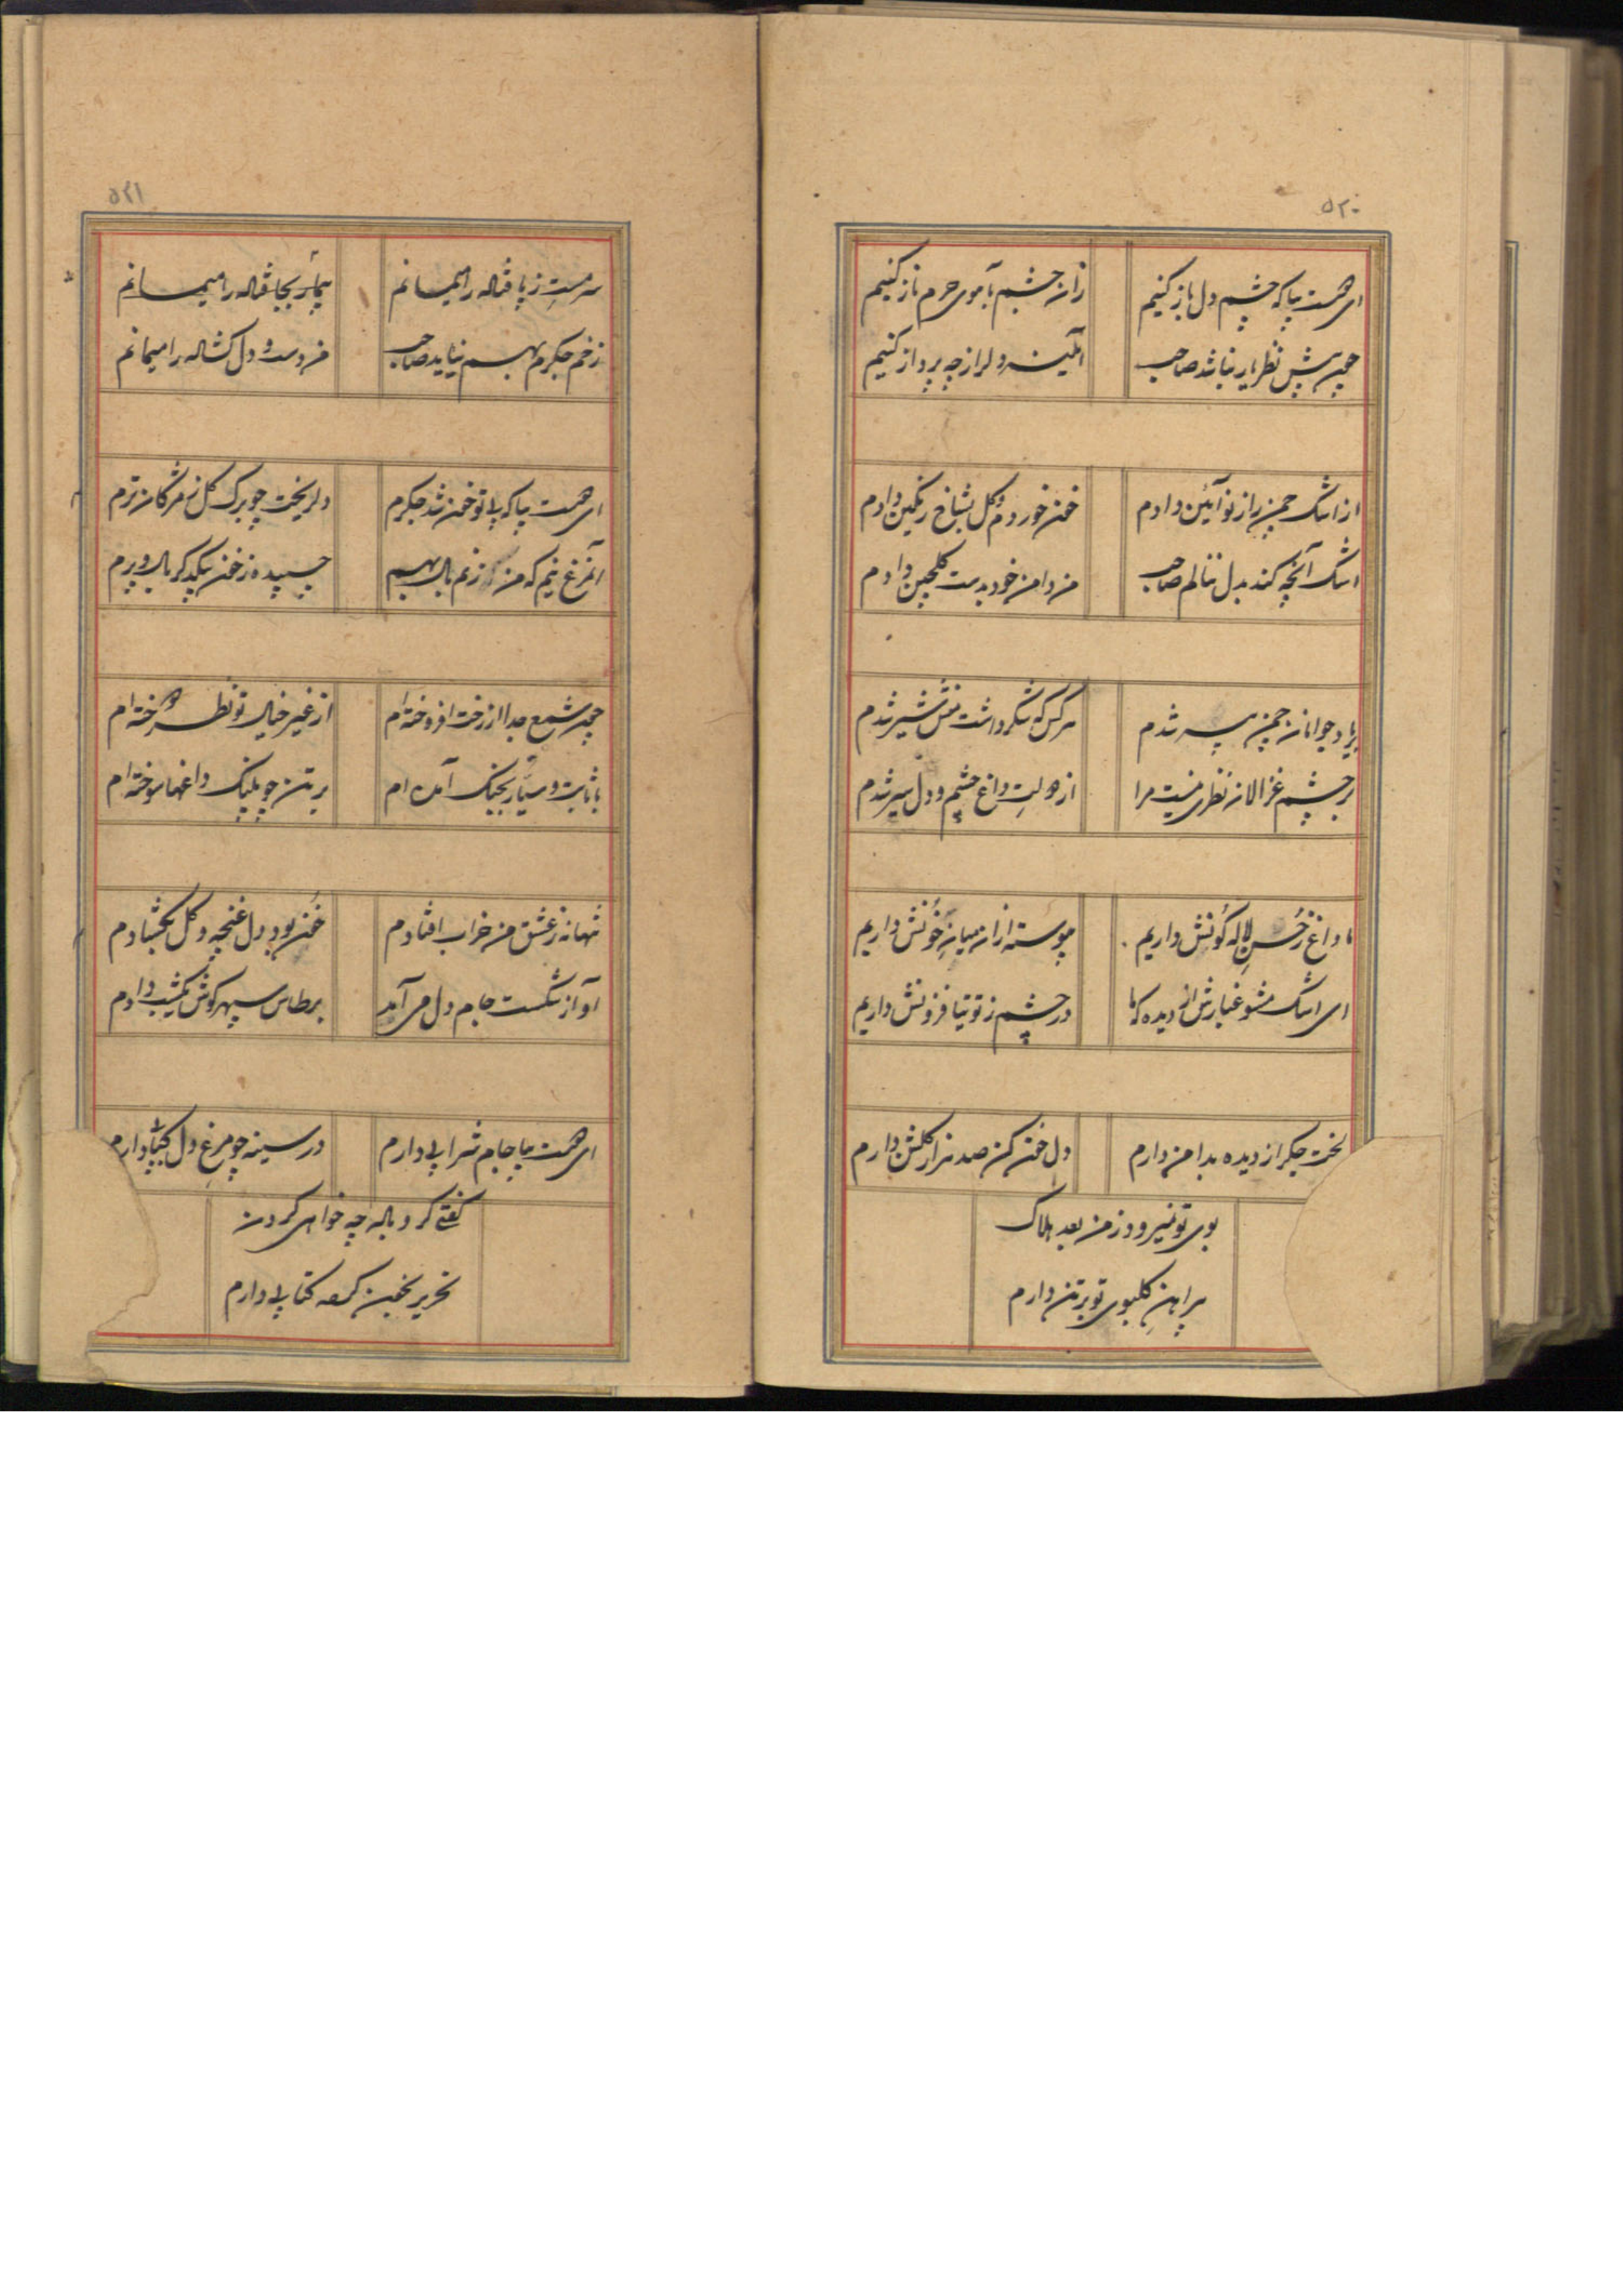 ۵۲۰
ای همت بیا که چشم دل باز کنیم
زان چشم بآهوی حرم ناز کنیم
چون پیش نظر یار نباشد صاحب
آئینه دل از چه پرداز کنیم
از اشک چمن را ز نو آئین دادم
خون خوردم و گل بشاخ رنگین دادم
اشک آنچه کند بدل ننالم صاحب
من دامن خود بدست گلچین دادم
بر یاد جوانان چمن پیر شدم
هر کس که شکر داشت منش شیر شدم
بر چشم غزالان نظری نیست مرا
از دولت داغ چشم و دل سیر شدم
ما داغ ز حسن لاله گونش داریم
پیوسته ازان میان خونش داریم
ای اشک مشو غبارش از دیده که ما
در چشم ز توتیا فزونش داریم
لخت جگر از دیده بدامن دارم
دل خون کن صد هزار گلشن دارم
بوی تو نمیرود ز من بعد هلاک
پیراهن گلبوی تو بر تن دارم
۵۲۱
سرمست ز پا فتاله را میمانم
بیمار بجا فتاله را میمانم
زخم جگرم بهم نیاید صاحب
من دست و دل کشاله را میمانم
ای همت بیا که بی تو خون شد جگرم
دل ریخت چو برک کل ز مژگان ترم
آنمرغ نیم که من زنم بال بهم
چسپیده ز خون بیکدگر بال و پرم
چون شمع جدا از رخت افروخته ام
از غیر خیال تو نظر دوخته ام
با ثابت و سیار بجنگ آمده ام
بر تن چو پلنگ داغها سوخته ام
تنها نه ز عشق من خراب افتادم
خون بود دل غنچه و گل بگشادم
آواز شکست جام دل می آمد
بر طاس سپهر گوش یکشب دادم
ای همت بیا جام شرابی دارم
در سینه چو مرغ دل کبابی دارم
گفتی کرد باله چه خواهی کردن
تحریر بخون کمعه کتابی دارم